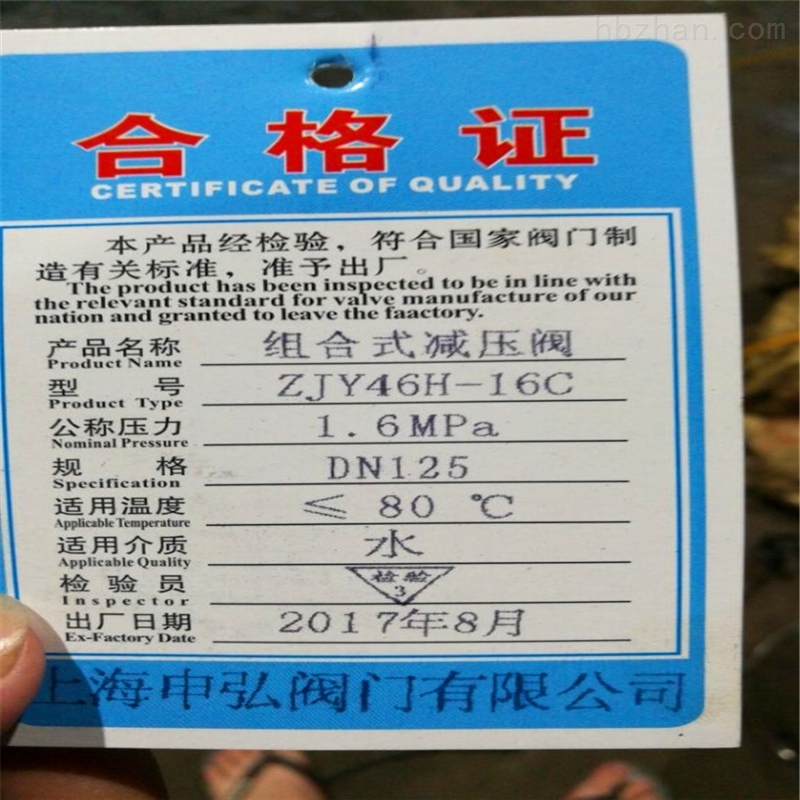 hbzhan.com
合格证
CERTIFICATE OF QUALITY
本产品经检验，符合国家阀门制
造有关标准，准予出厂。
The product has been inspected to be in line with
the relevant standard for valve manufacture of our
nation and granted to leave the faactory.
产品名称 组合式减压阀
Product Name
型号 ZJY46H-16C
Product Type
公称压力 1.6MPa
Nominal Pressure
规格 DN125
Specification
适用温度 ≤ 80 ℃
Applicable Temperature
适用介质 水
Applicable Quality
检验员 检验
Inspector 3
出厂日期 2017年8月
Ex-Factory Date
上海申弘阀门有限公司